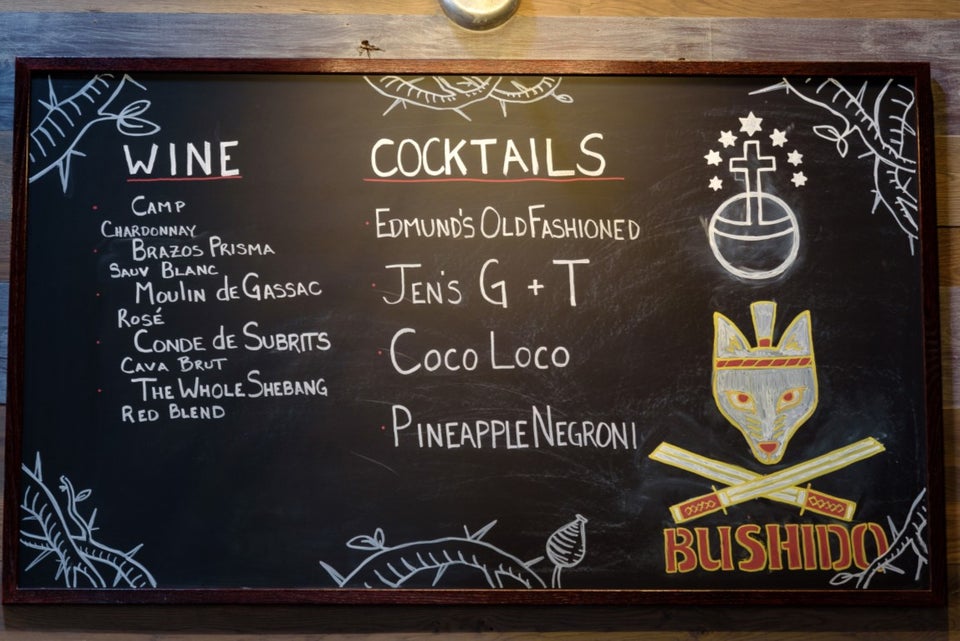 WINE
CAMP
CHARDONNAY
BRAZOS PRISMA
SAUV BLANC
MOULIN de GASSAC
ROSÉ
CONDE de SUBRITS
CAVA BRUT
THE WHOLE SHEBANG
RED BLEND
COCKTAILS
EDMUND'S OLD FASHIONED
JEN'S G + T
COCO LOCO
PINEAPPLE NEGRONI
BUSHIDO